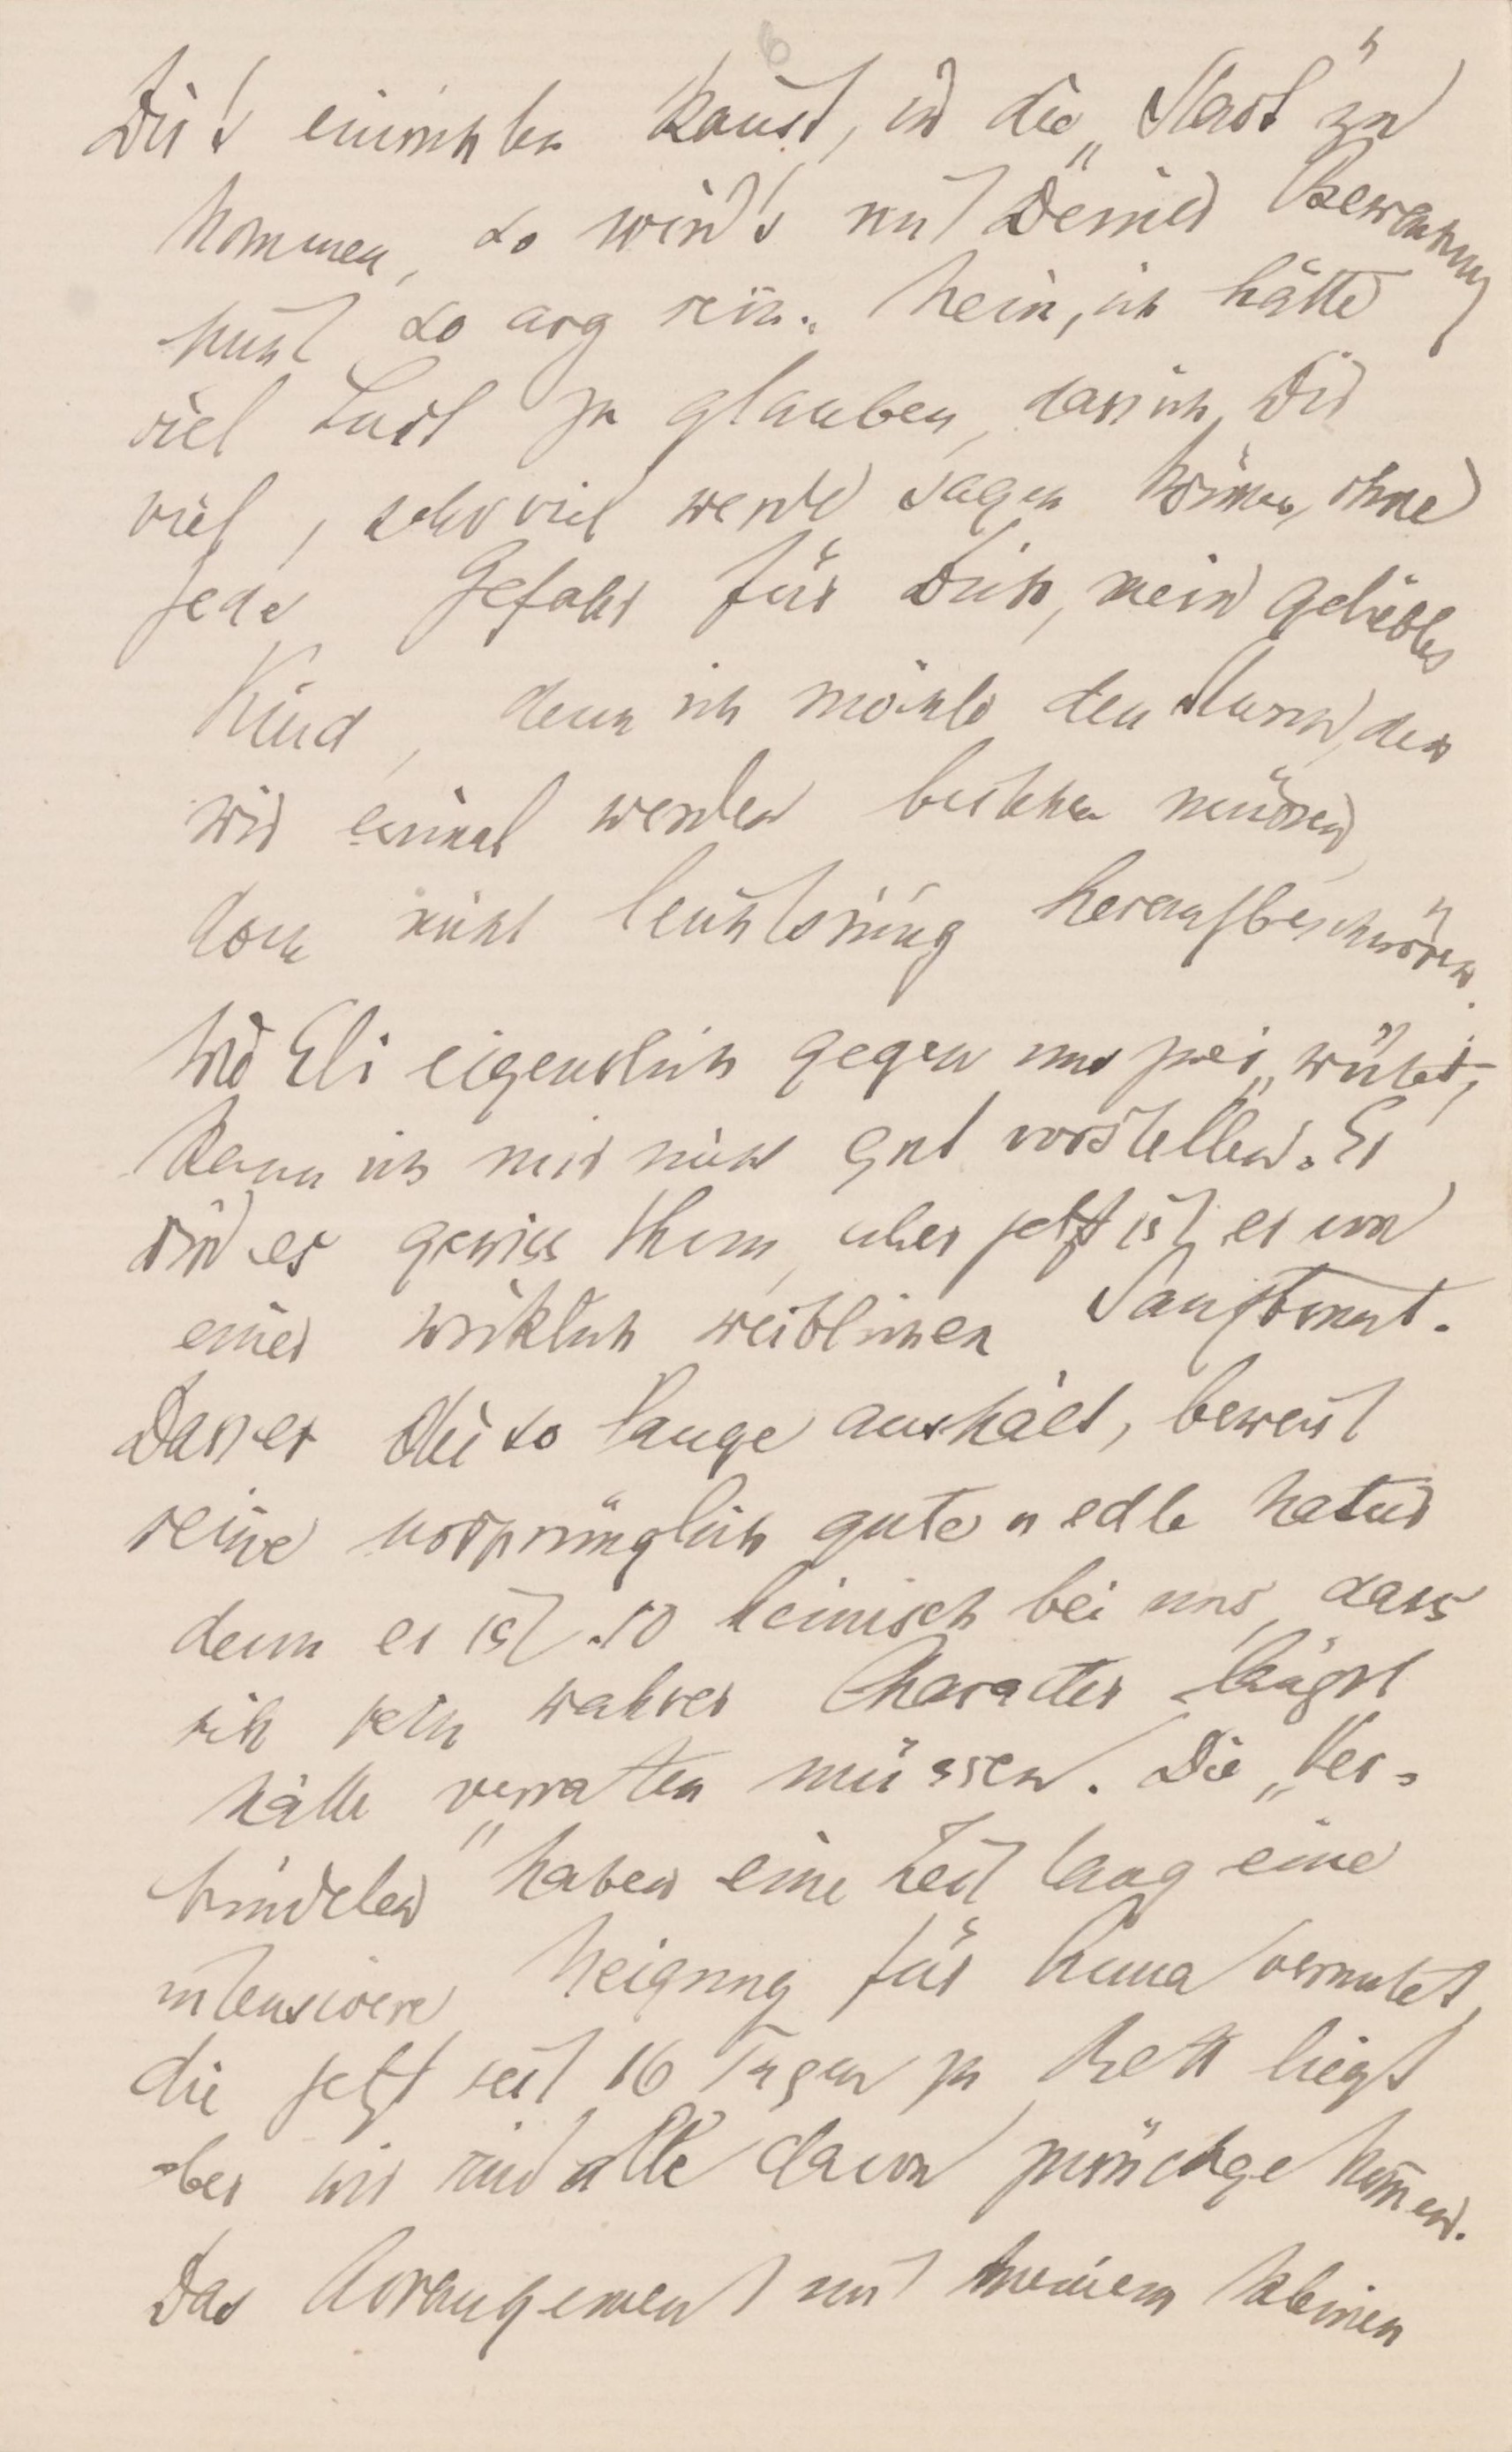 6
Dir's einrichten kanst, in die „Stadt" zu
kommen, so wird's mit Deiner Bewachung
nicht so arg sein. Nein, ich hätte
viel Lust zu glauben, dass ich Dir
viel, sehr viel werde sagen können, ohne
jede Gefahr für Dich, mein geliebtes
Kind, denn ich möchte den Sturm, den
wir einmal werden bestehen müssen,
doch nicht leichtsinnig heraufbeschwören.
Wie Eli eigentlich gegen uns zwei „wütet",
kann ich mir nicht gut vorstellen. Er
wird es gewiss thun, aber jetzt ist er von
einer wirklich weiblichen Sanftmut.
Dass er die so lange aushält, beweist
seine ursprünglich gute u edle Natur
denn er ist so heimisch bei uns, dass
sich sein wahrer Character längst
hätte verraten müssen. Die „Ver-
bündelen" haben eine Zeit lang eine
intensivere Neigung für Anna vermutet,
die jetzt seit 16 Tagen zu Bett liegt
aber wir sind alle davon zurückgekommen.
Das Arrangement mit meinem kleinen